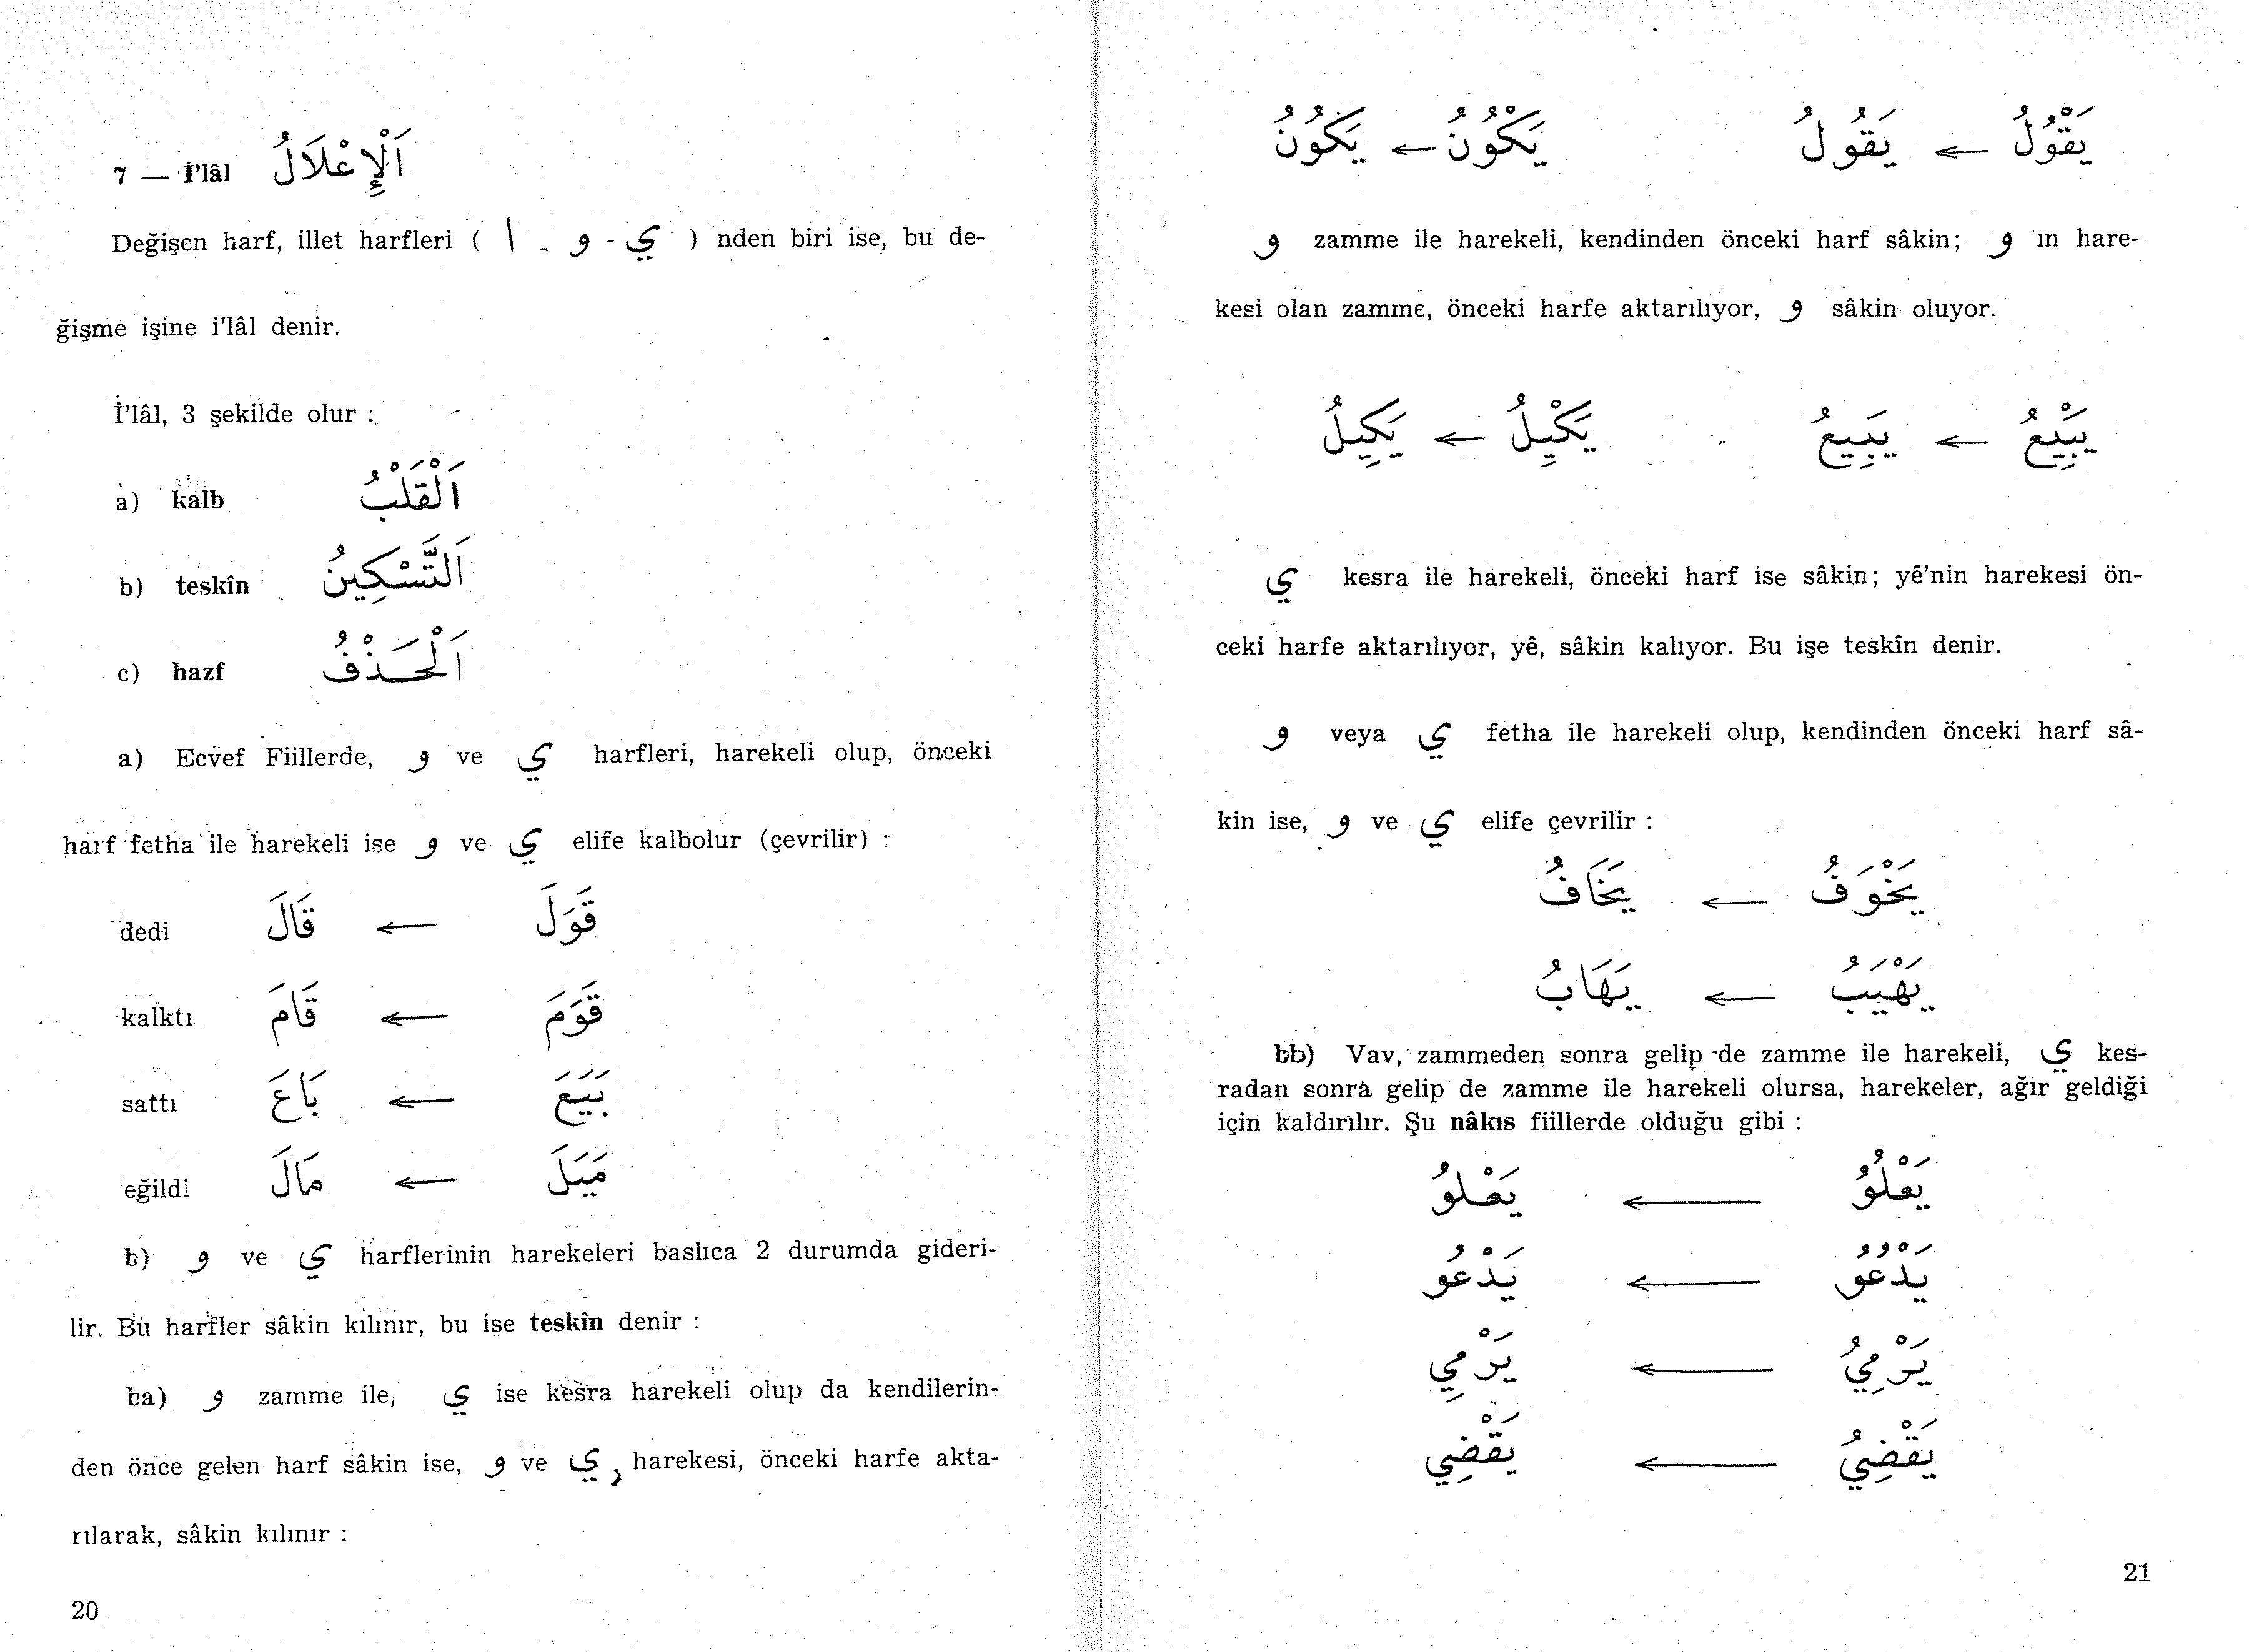 7 — İ'lâl اَلْإِعْلَالُ
Değişen harf, illet harfleri ( ا - و - ي ) nden biri ise, bu de-
ğişme işine i'lâl denir.
İ'lâl, 3 şekilde olur :
a) kalb اَلْقَلْبُ
b) teskîn اَلتَّسْكِينُ
c) hazf اَلْحَذْفُ
a) Ecvef Fiillerde, و ve ي harfleri, harekeli olup, önceki
harf fetha ile harekeli ise و ve ي elife kalbolur (çevrilir) :
dedi قَالَ ← قَوَلَ
kalktı قَامَ ← قَوَمَ
sattı بَاعَ ← بَيَعَ
eğildi مَالَ ← مَيَلَ
b) و ve ي harflerinin harekeleri baslıca 2 durumda gideri-
lir. Bu harfler sâkin kılınır, bu ise teskîn denir :
ba) و zamme ile, ي ise kesra harekeli olup da kendilerin-
den önce gelen harf sâkin ise, و ve ي , harekesi, önceki harfe akta-
rılarak, sâkin kılınır :
20
يَكُونُ ← يَكْوُنُ يَقُولُ ← يَقْوُلُ
و zamme ile harekeli, kendinden önceki harf sâkin; و 'ın hare-
kesi olan zamme, önceki harfe aktarılıyor, و sâkin oluyor.
يَكِيلُ ← يَكْيِلُ يَبِيعُ ← يَبْيِعُ
ي kesra ile harekeli, önceki harf ise sâkin; yê'nin harekesi ön-
ceki harfe aktarılıyor, yê, sâkin kalıyor. Bu işe teskîn denir.
و veya ي fetha ile harekeli olup, kendinden önceki harf sâ-
kin ise, و ve ي elife çevrilir :
يَخَافُ ← يَخْوَفُ
يَهَابُ ← يَهْيَبُ
bb) Vav, zammeden sonra gelip de zamme ile harekeli, ي kes-
radan sonra gelip de zamme ile harekeli olursa, harekeler, ağır geldiği
için kaldırılır. Şu nâkıs fiillerde olduğu gibi :
يَعْلُو ← يَعْلُوُ
يَدْعُو ← يَدْعُوُ
يَرْمِي ← يَرْمِيُ
يَقْضِي ← يَقْضِيُ
21